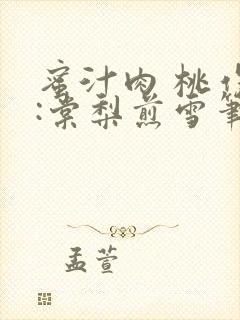 蜜汁肉桃作
:棠梨煎雪笔
孟萱